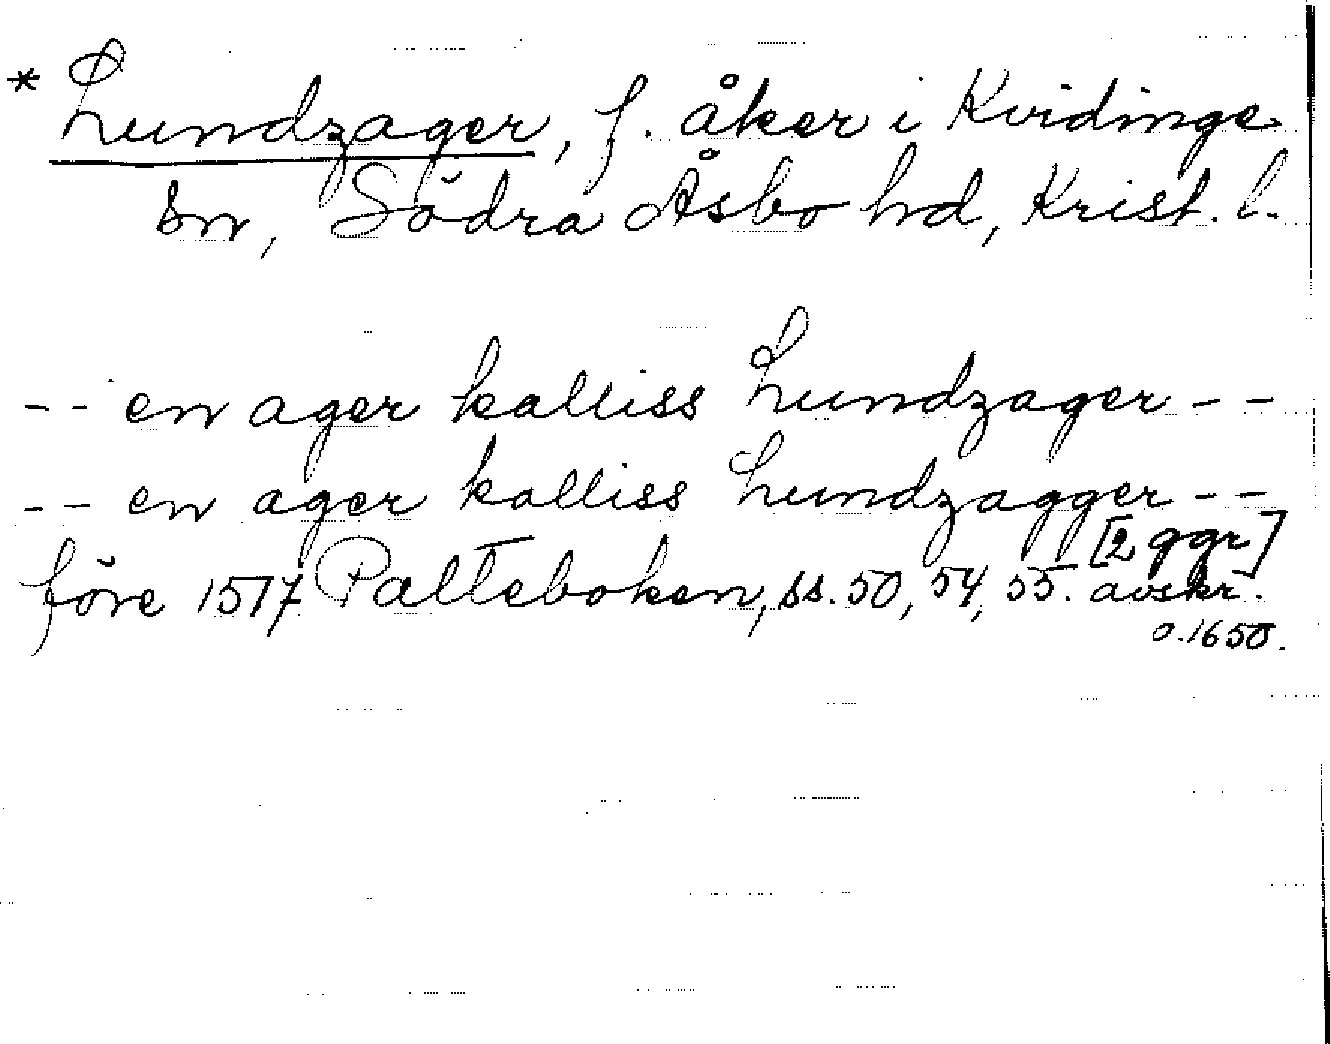 * Lundzager, f. åker i Kvidinge
sn, Södra Åsbo hd, Krist. l.
-- en ager kalliss Lundzager --
-- en ager kalliss Lundzagger --
[2 ggr]
före 1517 Palteboken, ss. 50, 54, 55. avskr.
o. 1650.